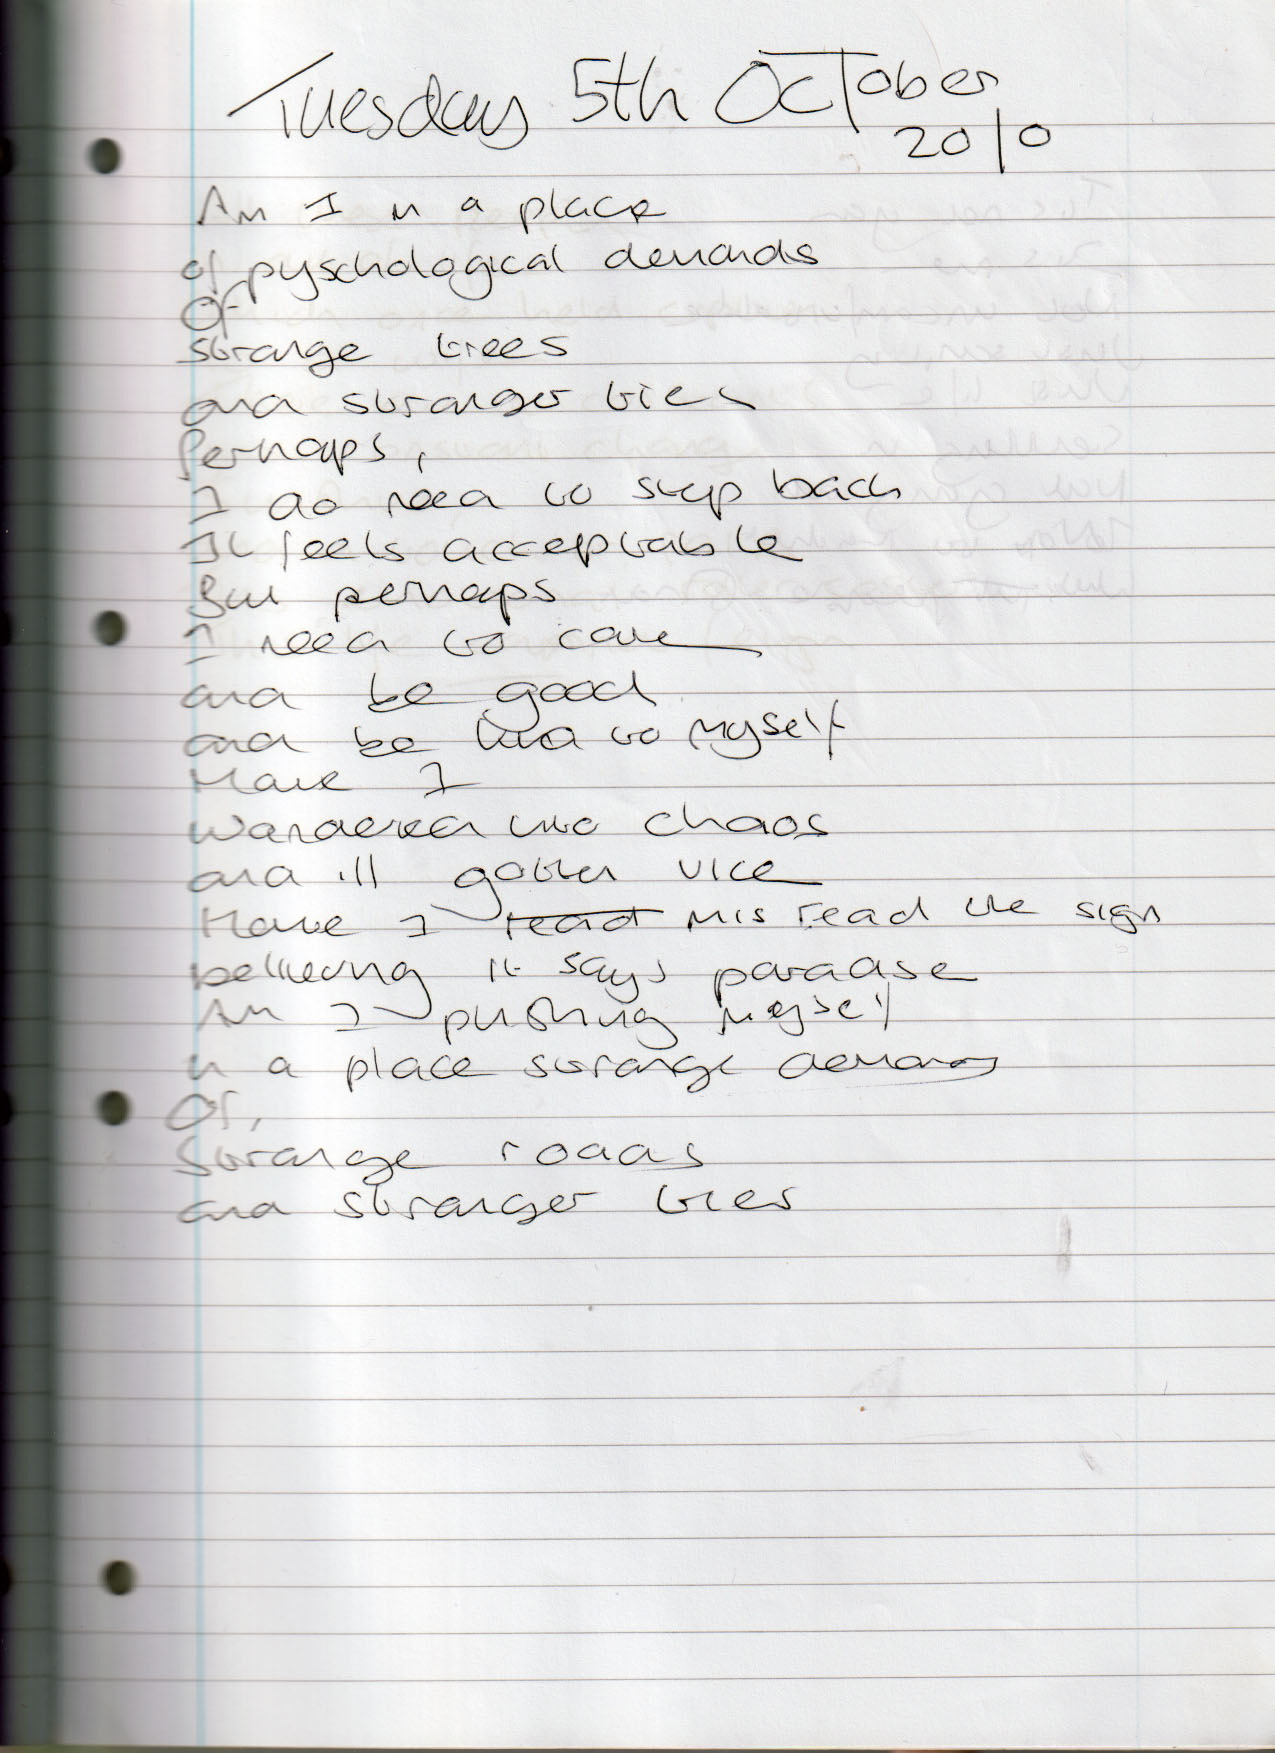 Tuesday 5th October
2010
Am I in a place
of pyschological demands
Of
strange trees
and stranger ties
Perhaps,
I do need to step back
It feels acceptable
But perhaps
I need to care
and be good
and be kind to myself
Have I
wandered into chaos
and ill gotten vice
Have I read misread the sign
believing it says paradise
Am I pushing myself
in a place strange demands
Of,
Strange roads
and stranger ties